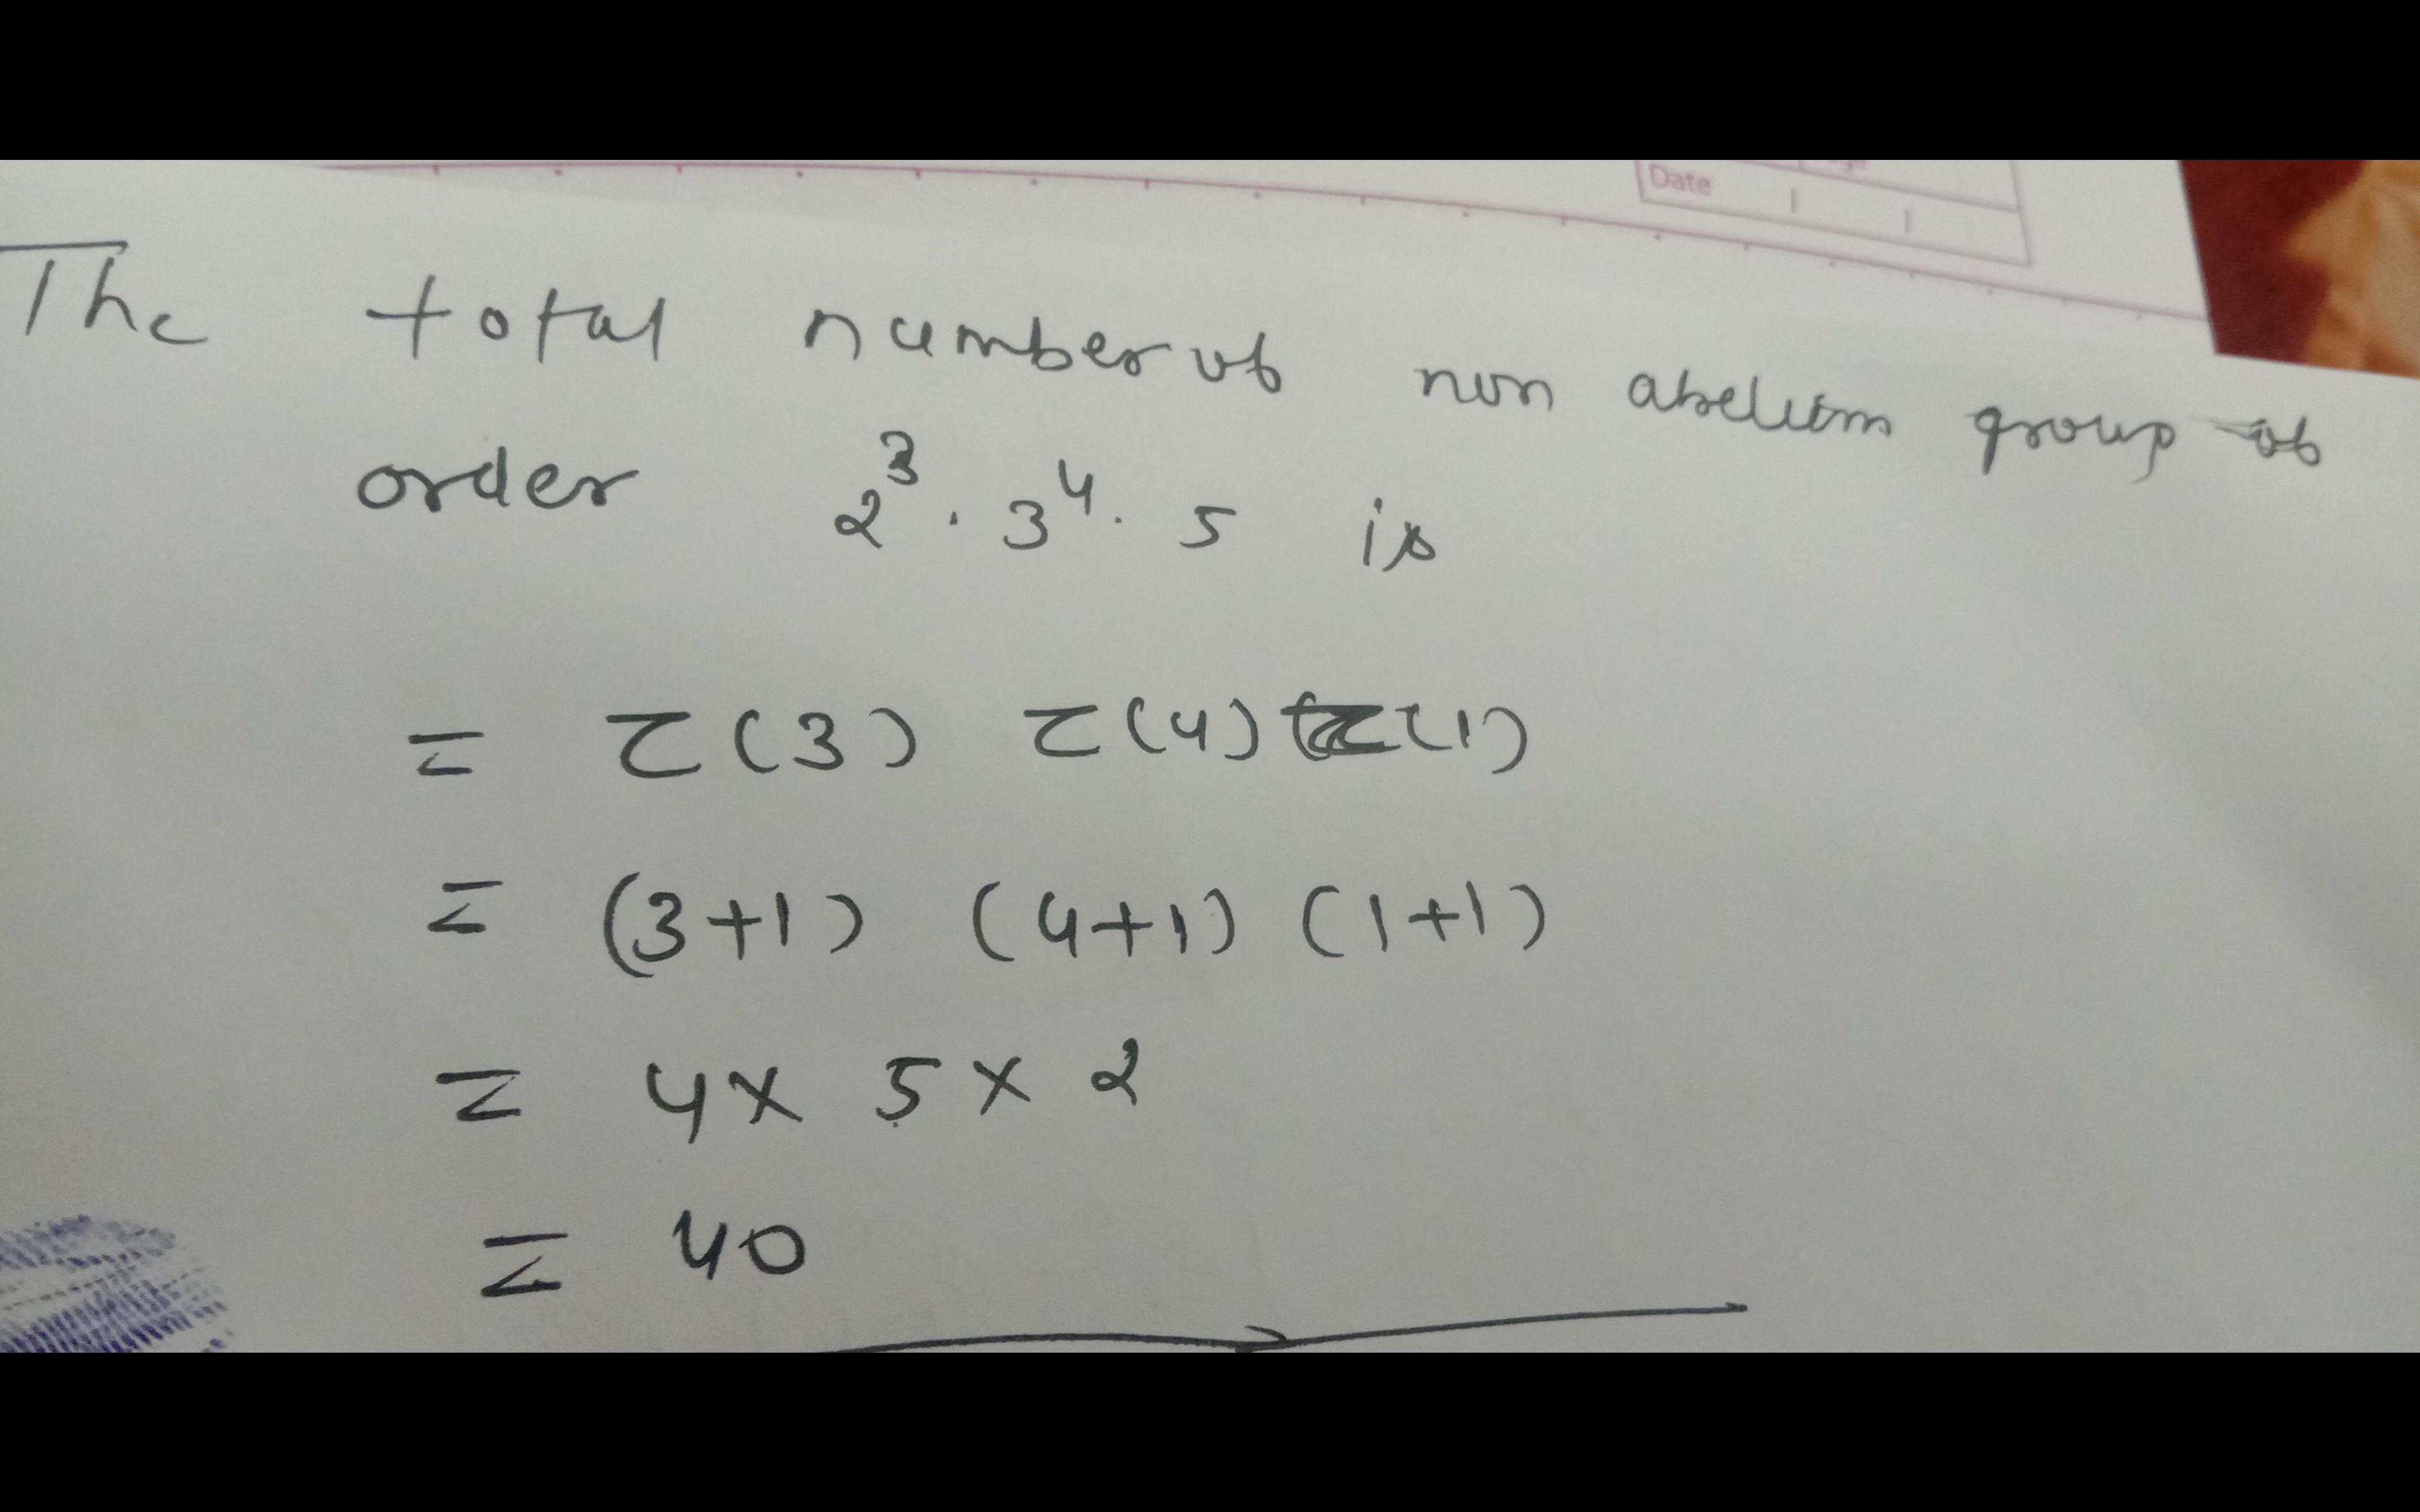 Date
The total number of non abelian group of
order 2³ · 3⁴ · 5 is
= τ(3) τ(4) τ(1)
= (3+1) (4+1) (1+1)
= 4 × 5 × 2
= 40